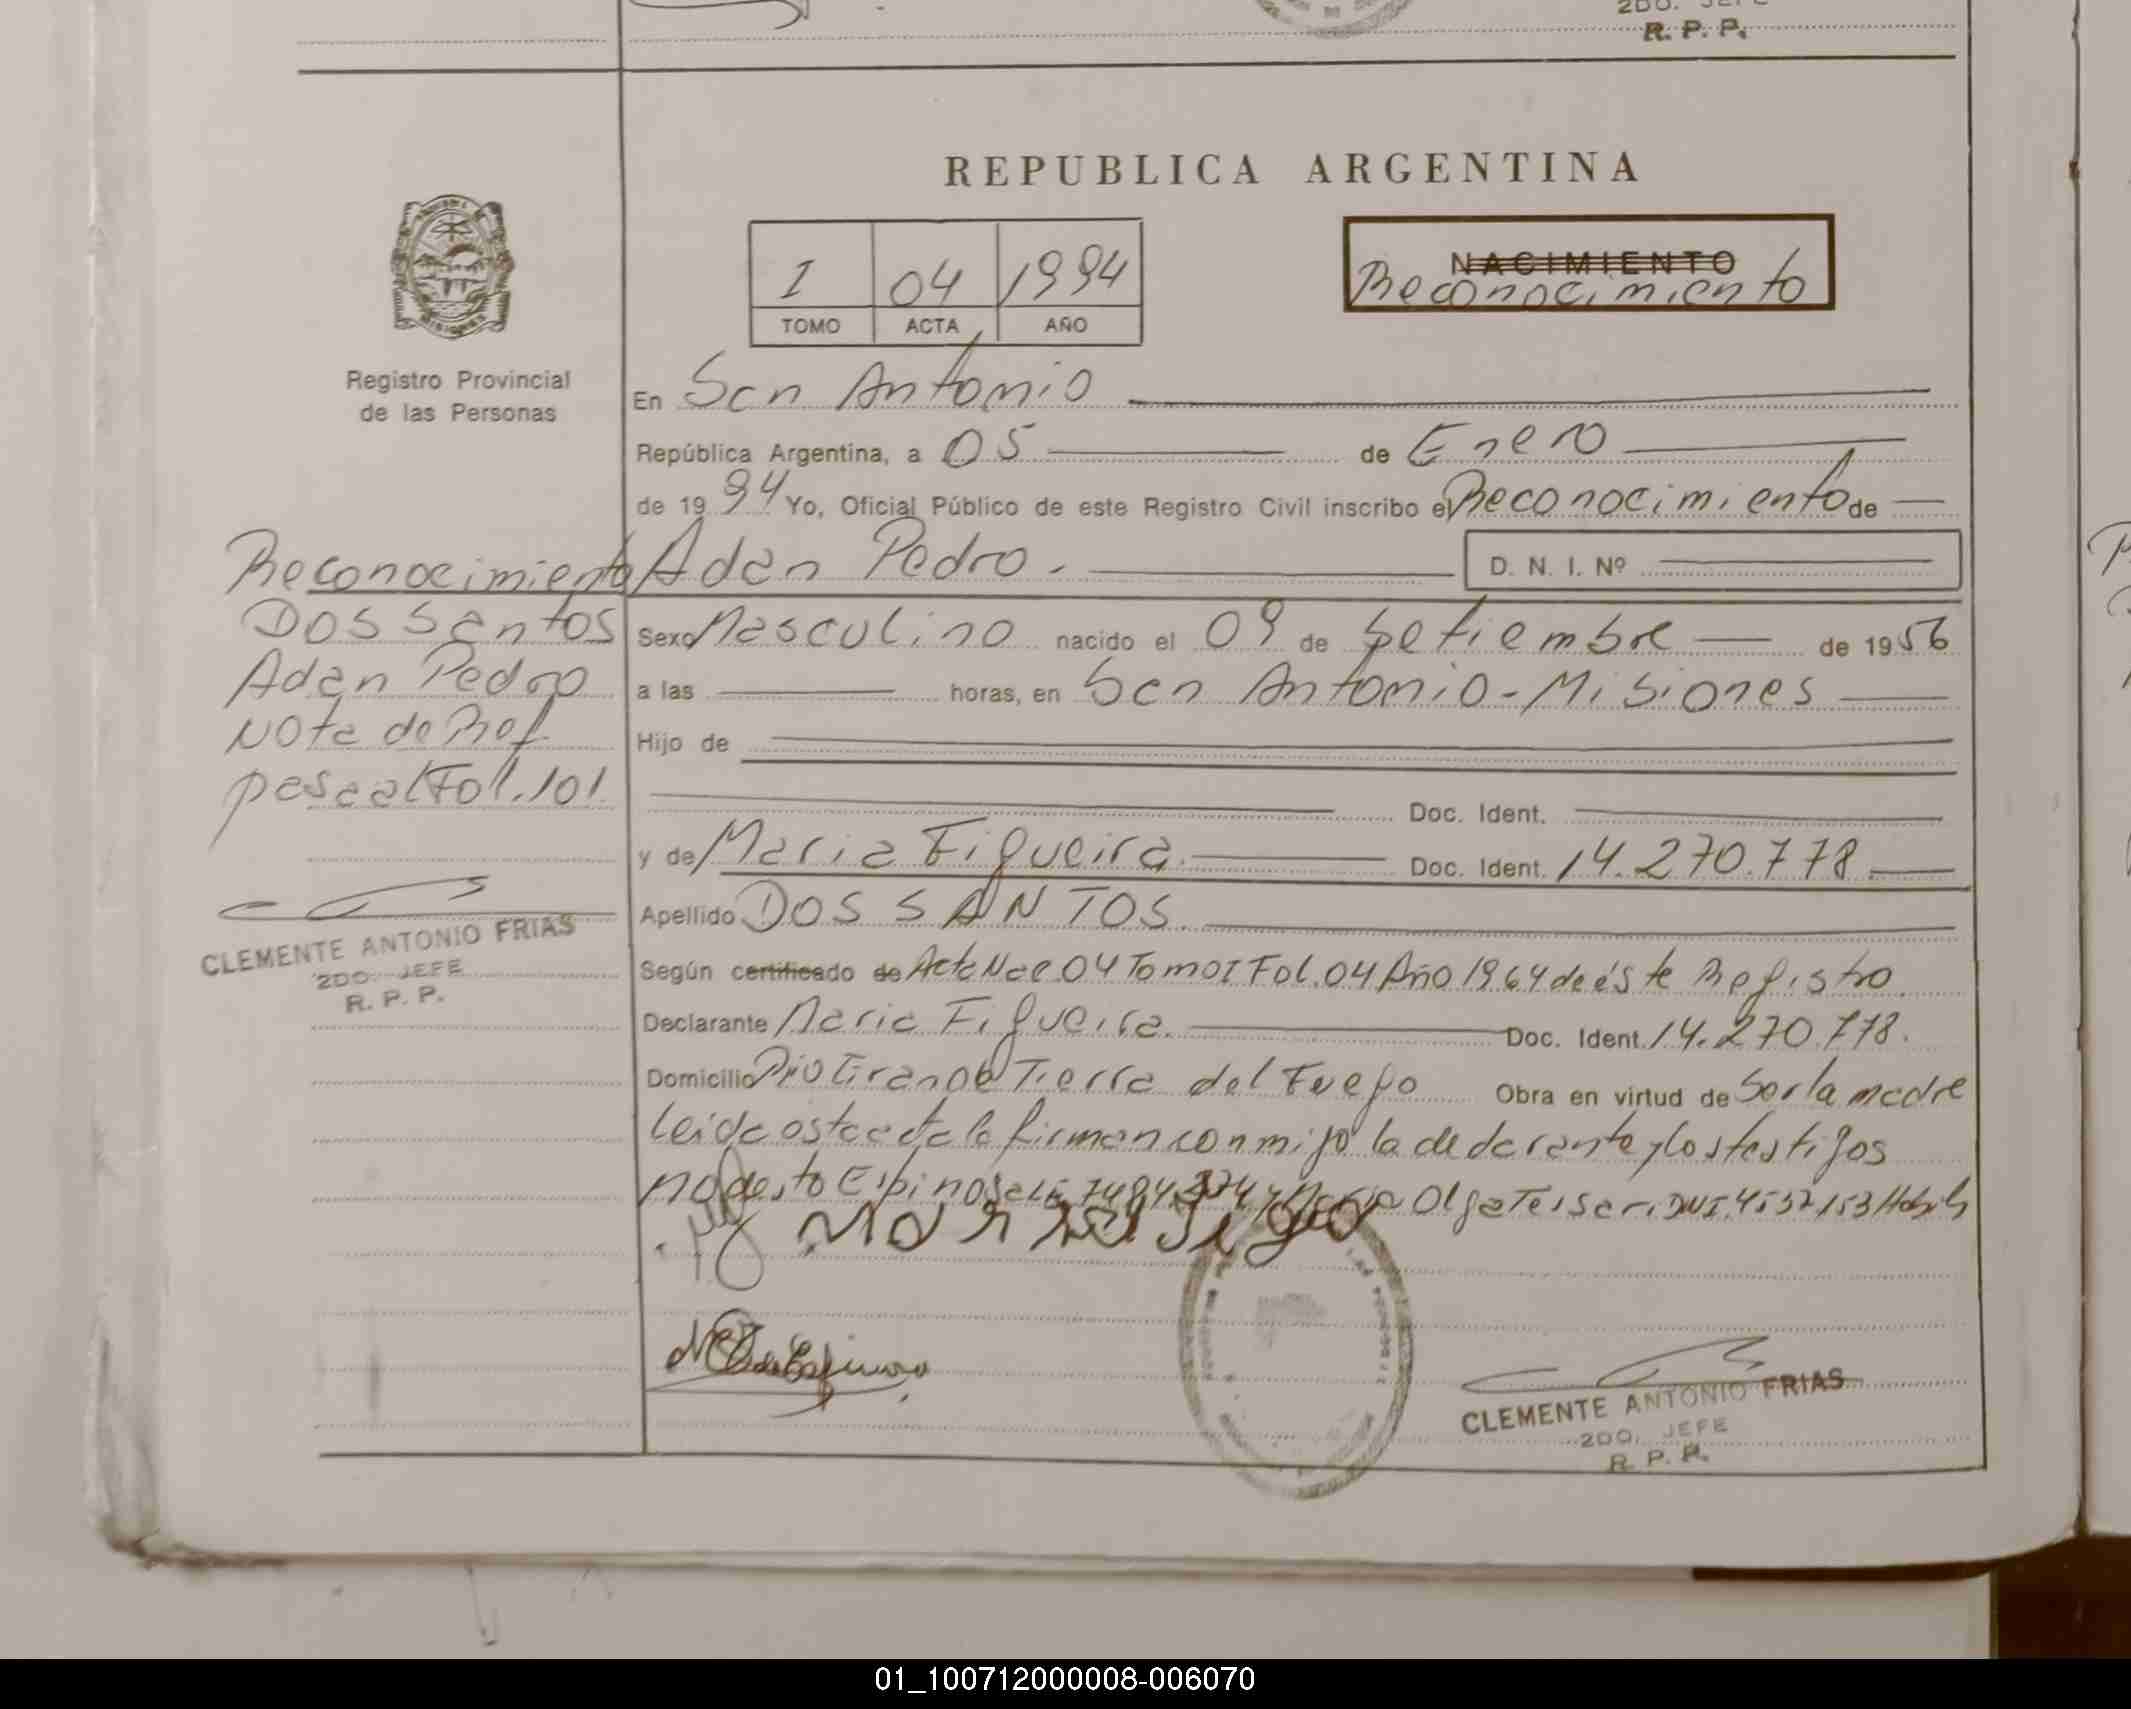 2DO. JEFE
R. P. P.
REPUBLICA ARGENTINA
I 04 1994
TOMO ACTA AÑO
NACIMIENTO
Reconocimiento
Registro Provincial
de las Personas
En San Antonio
República Argentina, a 05 de Enero
de 1994 Yo, Oficial Público de este Registro Civil inscribo el Reconocimiento de
Adan Pedro. D. N. I. Nº
Sexo Masculino nacido el 09 de Setiembre de 1956
a las horas, en San Antonio - Misiones
Hijo de
Doc. Ident.
y de Maria Figueira. Doc. Ident. 14.270.778
Apellido DOS SANTOS.
Según certificado de Acta Nac. 04 Tomo I Fol. 04 Año 1964 de éste Registro.
Declarante Maria Figueira. Doc. Ident. 14.270.778.
Domicilio Rio Grande Tierra del Fuego Obra en virtud de Ser la madre
leida esta acta la firman conmigo la declarante y los testigos
Modesto Espinosa LE 7484 y Maria Olga DNI. 4537153 Habils
Reconocimiento
DOS Santos
Adan Pedro
Nota de Ref.
pasa al Fol. 101.
CLEMENTE ANTONIO FRIAS
2DO. JEFE
R. P. P.
CLEMENTE ANTONIO FRIAS
2DO. JEFE
R. P. P.
01_100712000008-006070